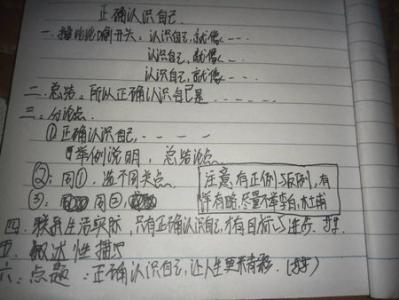 正确认识自己.
一.排比论喇开头:认识自己,就像一…
认识自己,就像一…
认识自己,就像一…
二.总结:所以正确认识自己是……
三.分论点
①正确认识自己,- - - -
举例说明,总结论点
②:同①,选不同类点
③:同②
注意,有正例与反例,有
详有略,尽量不举李白,杜甫
四.联系生活实际,只有正确认识自己,才有目标
五.叙述性描写
六:点题:正确认识自己,让人生更来精彩.